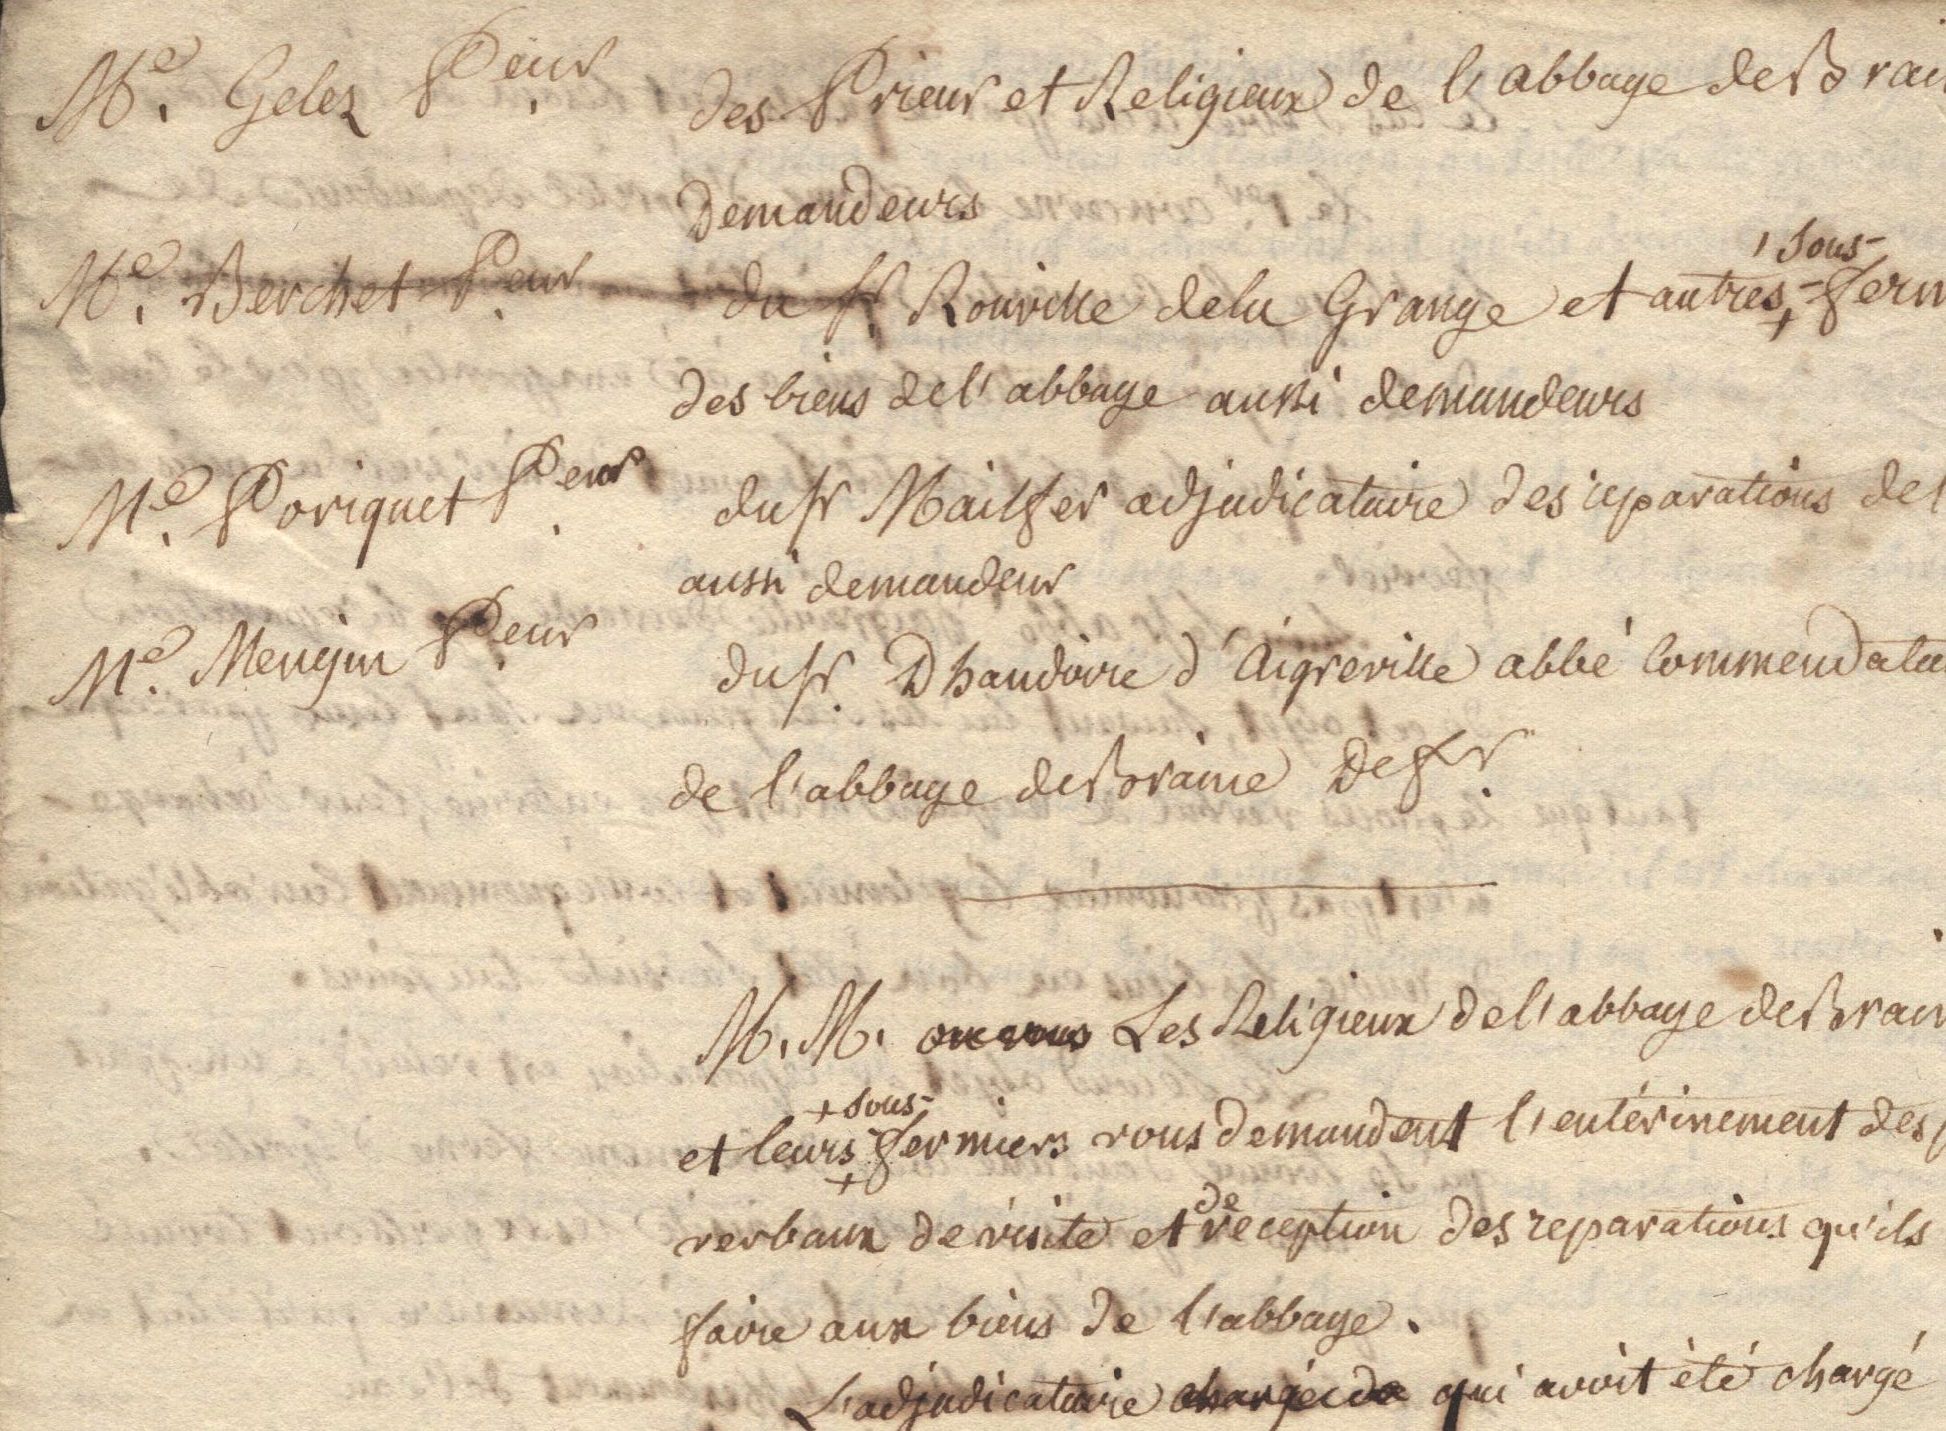 Me. Gelez Peur. des Prieur et Religieux de l'abbaye de Brai
Demandeurs
Me. Berchet Peur. du Sr. Rouville dela Grange et autres + sous-ferm
des biens de l'abbaye aussi demandeurs
Me. Poriquet Peur. du Sr Mailfer adjudicataire des reparations de l
aussi demandeur
Me. Mengin Peur. du Sr. Dhaudoire d'Aigreville abbé Commendata
de l'abbaye de Braine Defr.
M. M. Les Religieux de l'abbaye de Brain
et leurs + sous-fermiers vous demandent l'entérinement des p
verbaux de visite et de reception des reparations qu'ils
faire aux biens de l'abbaye.
L'adjudicataire chargé de qui avoit été chargé